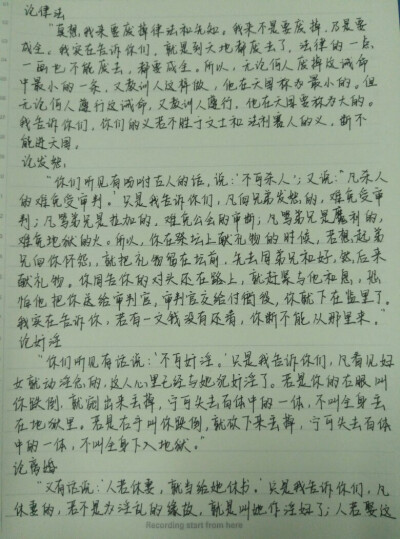 论律法
“莫想我来要废掉律法和先知。我来不是要废掉，乃是要
成全。我实在告诉你们，就是到天地都废去了，法律的一点
一画也不能废去，都要成全。所以，无论何人废掉这诫命
中最小的一条，又教训人这样做，他在天国称为最小的。但
无论何人遵行这诫命，又教训人遵行，他在天国要称为大的。
我告诉你们，你们的义若不胜于文士和法利赛人的义，断不
能进天国。
论发怒
“你们听见有吩咐古人的话，说：‘不可杀人’；又说：“凡杀人
的难免受审判。’只是我告诉你们，凡向弟兄发怒的，难免受审
判；凡骂弟兄是拉加的，难免公会的审断；凡骂弟兄是魔利的，
难免地狱的火。所以，你在祭坛上献礼物的时候，若想起弟
兄向你怀怨，就把礼物留在坛前，先去同弟兄和好，然后来
献礼物。你同告你的对头还在路上，就赶紧与他和息，恐
怕他把你送给审判官，审判官交给付衙役，你就下在监里了。
我实在告诉你，若有一文钱没有还清，你断不能从那里来。”
论奸淫
“你们听见有话说：‘不可奸淫。’只是我告诉你们，凡看见妇
女就动淫念的，这人心里已经与她犯奸淫了。若是你的右眼叫
你跌倒，就剜出来丢掉，宁可失去百体中的一体，不叫全身丢
在地狱里。若是右手叫你跌倒，就砍下来丢掉，宁可失去百体
中的一体，不叫全身下入地狱。”
论离婚
“又有话说：‘人若休妻，就当给她休书。’只是我告诉你们，凡
休妻的，若不是为淫乱的缘故，就是叫她作淫妇了；人若娶这
Recording start from here